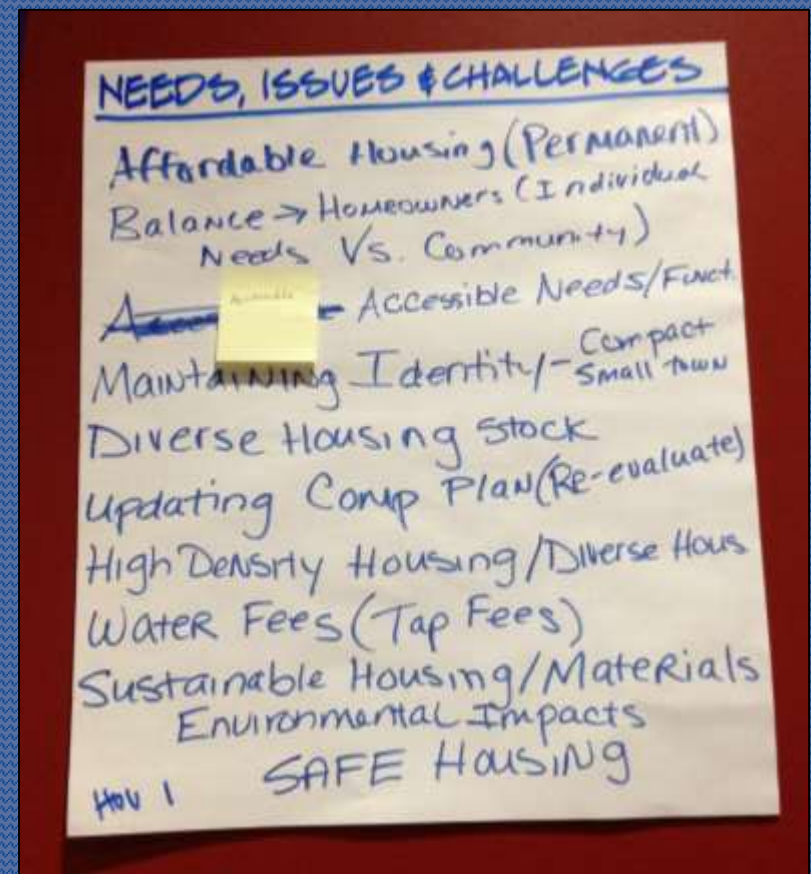 NEEDS, ISSUES & CHALLENGES
Affordable Housing (Permanent)
Balance → Homeowners (Individual
Needs Vs. Community)
Accessible Needs/Funct.
Maintaining Identity/- Compact
Small town
Diverse Housing Stock
Updating Comp Plan (Re-evaluate)
High Density Housing/Diverse Hous
Water Fees (Tap Fees)
Sustainable Housing/Materials
Environmental Impacts
SAFE Housing
HOU 1